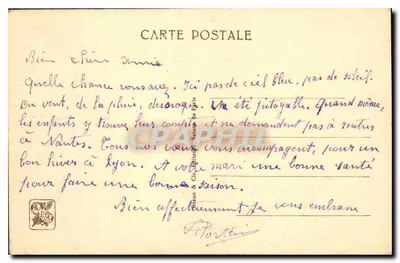 CARTE POSTALE
Bien chère amie
Quelle chance vous avez. Ici pas de ciel bleu, pas de soleil.
Du vent, de la pluie, des orages. Un été pitoyable. Quand même,
les enfants y trouve leur compte et ne demandent pas à rentrer
à Nantes. Tous nos vœux vous accompagnent, pour un
bon hiver à Lyon. A votre mari une bonne santé
pour faire une bonne saison.
Bien affectueusement je vous embrasse